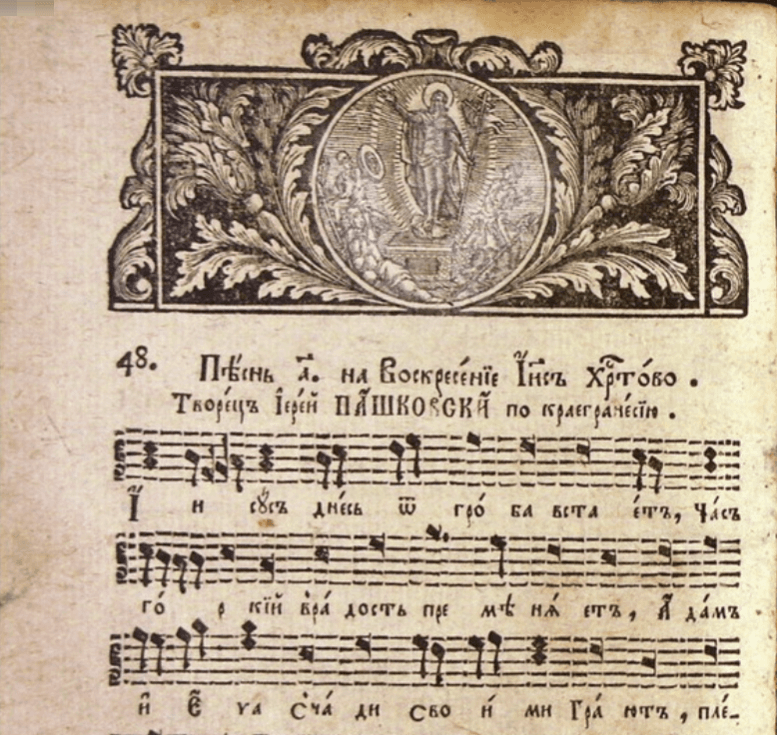 48. Пѣснь а҃. на Воскресе́нїе І҆и҃съ Хрⷭ҇то́во .
Творе́цъ І҆ере́й ПА́ШКОВСКІЙ по краегране́сїю .
І҆ и су́съ дне́сь ѿ гро́ ба вста е́тъ, ча́съ
го́ р кїй в̾ра́ дость пре мѣ ня́ етъ, А҆ да́мъ
и҆ Е҆ ѵа с̾ча́ ди сво и́ ми гра́ ютъ, пле-